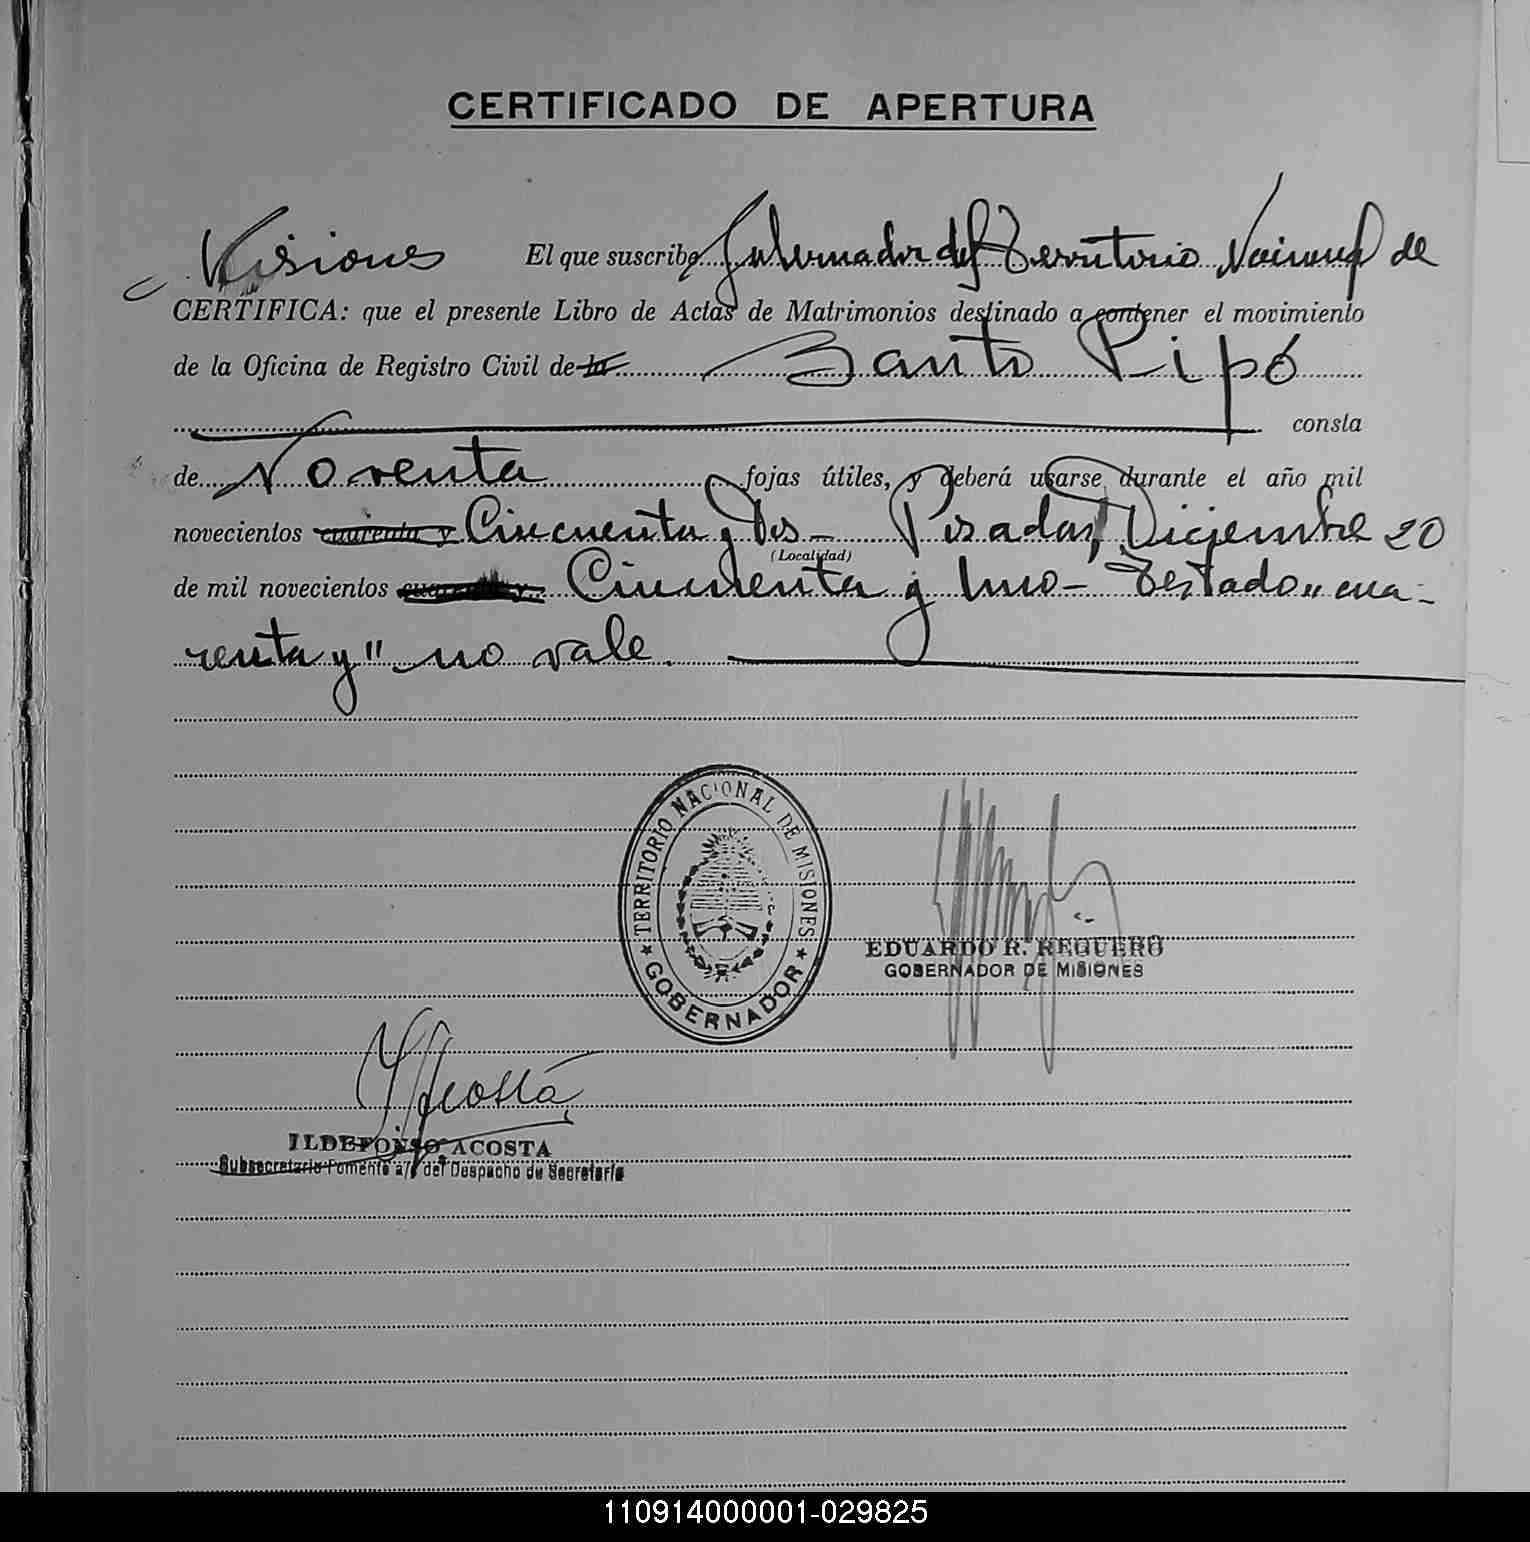 CERTIFICADO DE APERTURA
El que suscribe Gobernador del Territorio Nacional de
Misiones
CERTIFICA: que el presente Libro de Actas de Matrimonios destinado a contener el movimiento
de la Oficina de Registro Civil de la Santo Pipó
consta
de Noventa fojas útiles, y deberá usarse durante el año mil
novecientos cuarenta y Cincuenta y Dos - Posadas, Diciembre 20
(Localidad)
de mil novecientos cuarenta y Cincuenta y Uno - Testado "cua-
renta y" no vale.
TERRITORIO NACIONAL DE MISIONES
★ GOBERNADOR ★
EDUARDO R. REQUERO
GOBERNADOR DE MISIONES
IAcosta
ILDEFONSO ACOSTA
Subsecretario Fomento a/c del Despacho de Secretaría
110914000001-029825